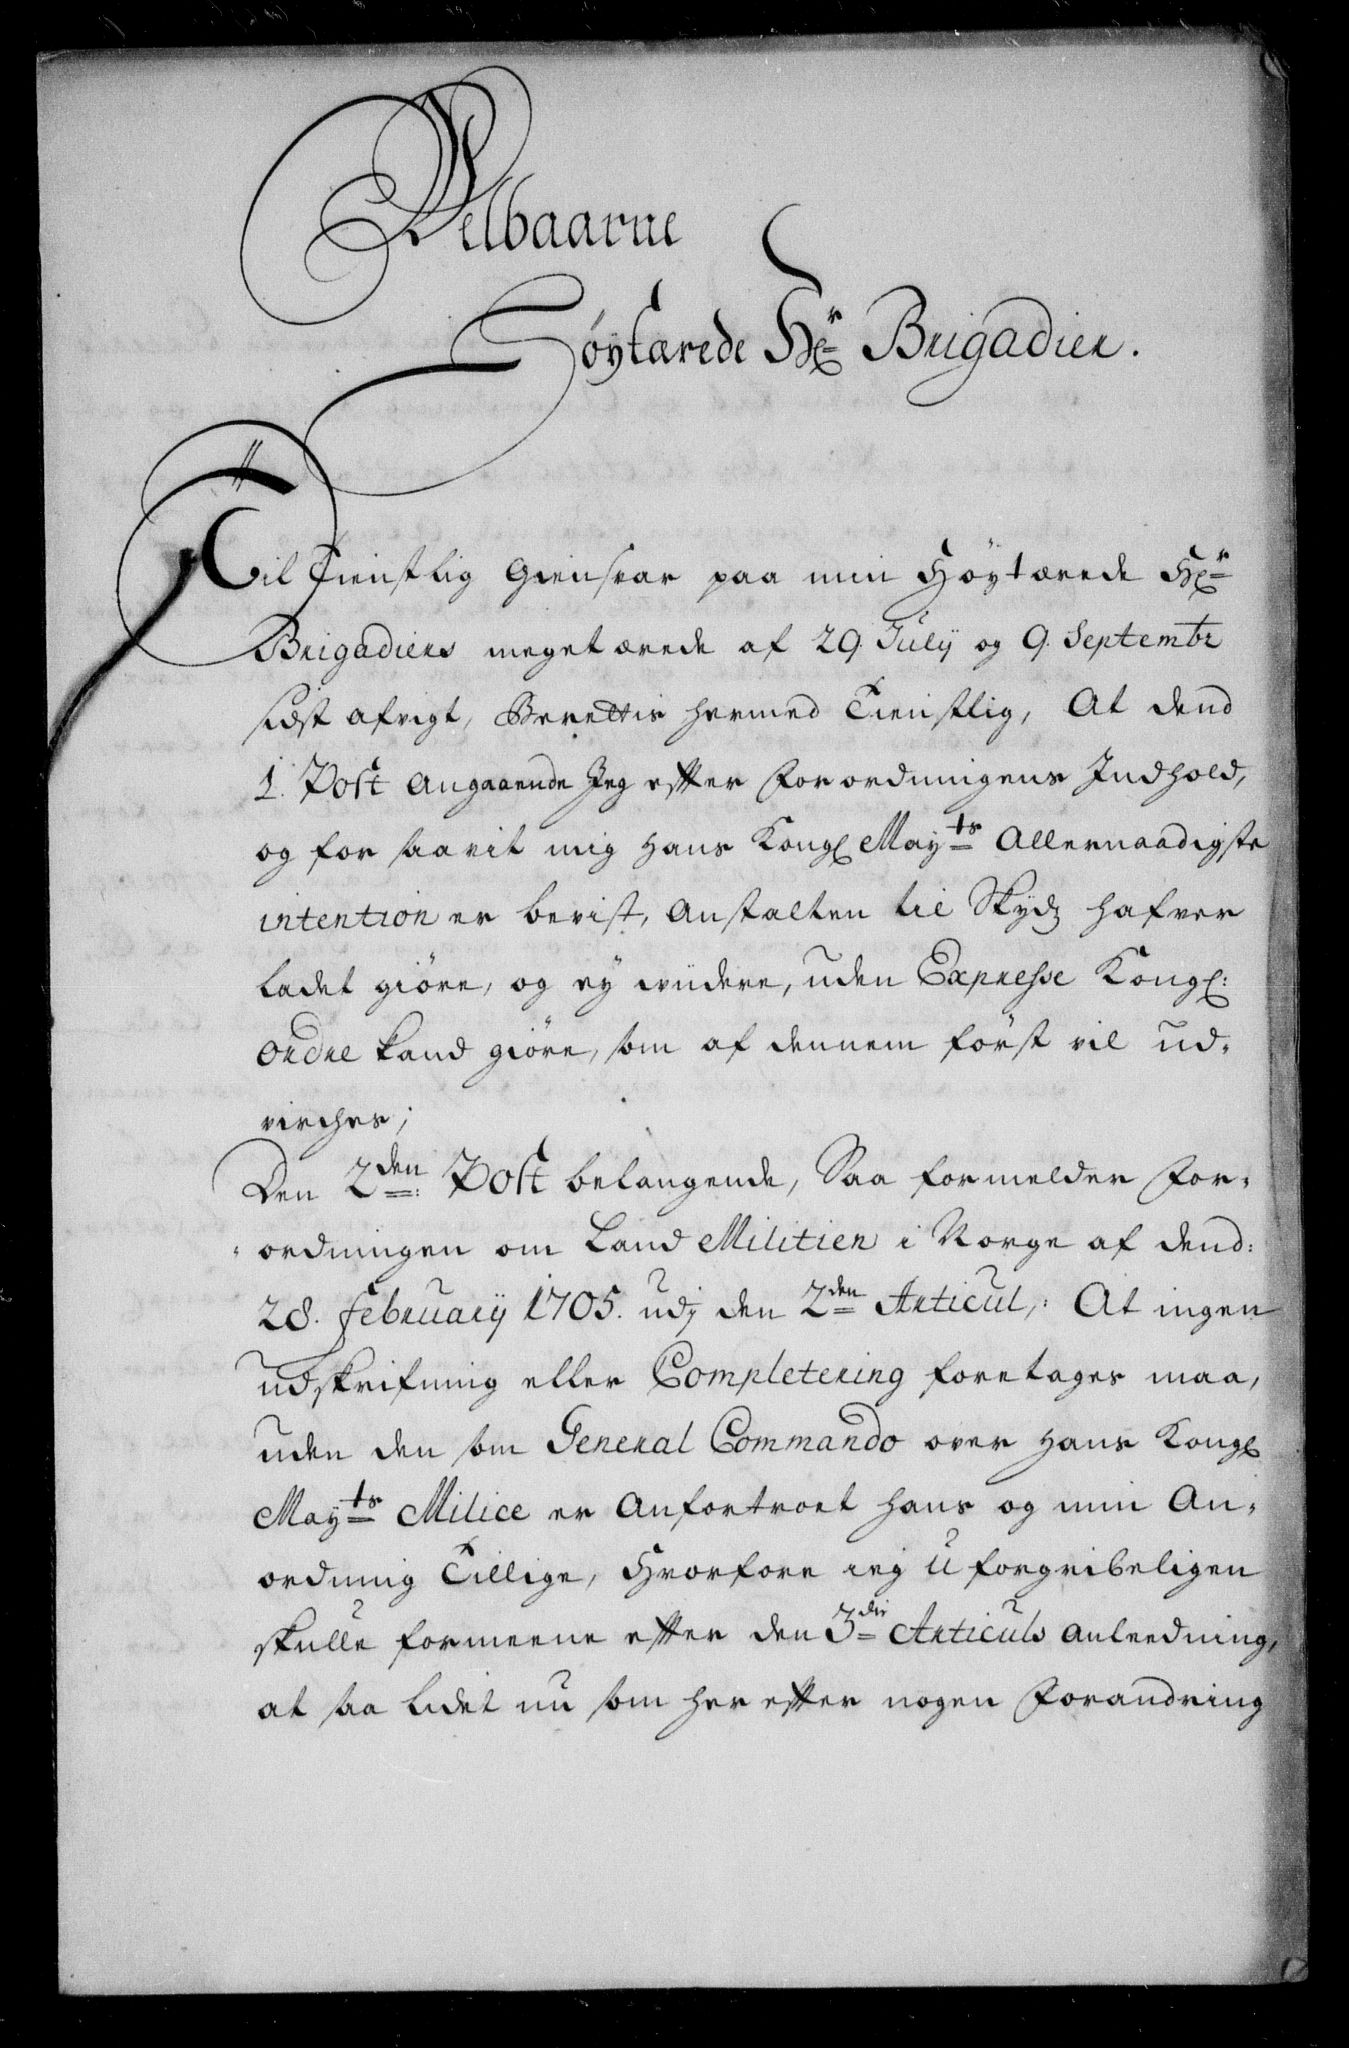 Velbaarne
Høytærede Hr Brigadier.
Til Tienstlig Giensvar paa min Høytærede Hr
Brigadiers meget ærede af 29. Julÿ og 9. Septembr
sidst afvigt, Berettis hermed Tienstlig, At dend
1. Post angaaende Jeg efter Forordningens Indhold,
og for saavit mig Hans Kongl May:ts Allernaadigste
intention er bevist, Anstalten til Skydz hafver
ladet giöre, og ey widere, uden Expresse Kongl:
Ordre kand giöre, som af dennem först vil ud-
virches;
Den 2den: Post belangende, Saa formelder For-
ordningen om Land Militien i Norge af dend:
28. Februarÿ 1705. udj den 2den Articul,: At ingen
udskrifning eller Completering foretages maa,
uden den som General Commando over Hans Kongl
May:ts Milice er Anfortroet hans og min An-
ordning Tillige, Hvorfore ieg Uforgribeligen
skulle formeene efter den 3die Articuls anleedning,
at saa lidet nu som her efter nogen Forandring